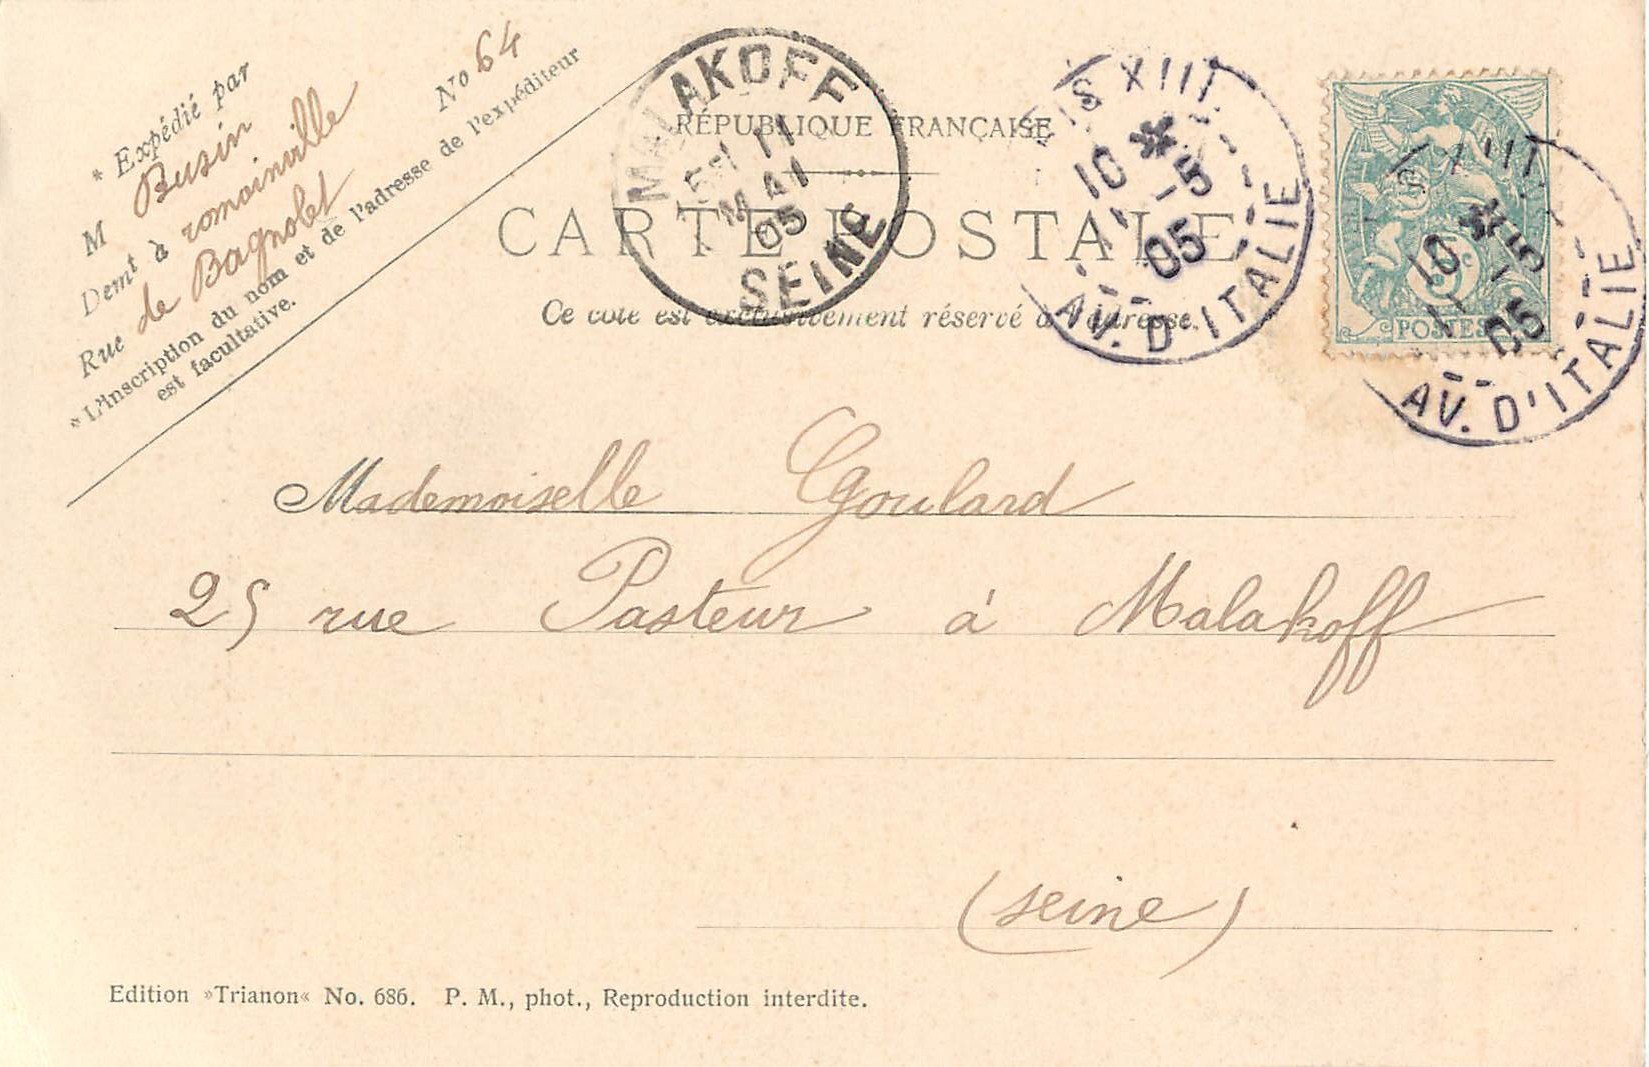 * Expédié par
M Busin
Demt à romainville
Rue de Bagnolet No 64
* L'inscription du nom et de l'adresse de l'expéditeur
est facultative.
RÉPUBLIQUE FRANÇAISE
CARTE POSTALE
Ce coté est exclusivement réservé à l'adresse.
MALAKOFF
11
MAI
05
SEINE
IS XIII
10 * -5
05
AV. D'ITALIE
POSTES
S XIII
10 * 5
05
AV. D'ITALIE
Mademoiselle Goulard
25 rue Pasteur à Malakoff
(seine)
Edition »Trianon« No. 686. P. M., phot., Reproduction interdite.